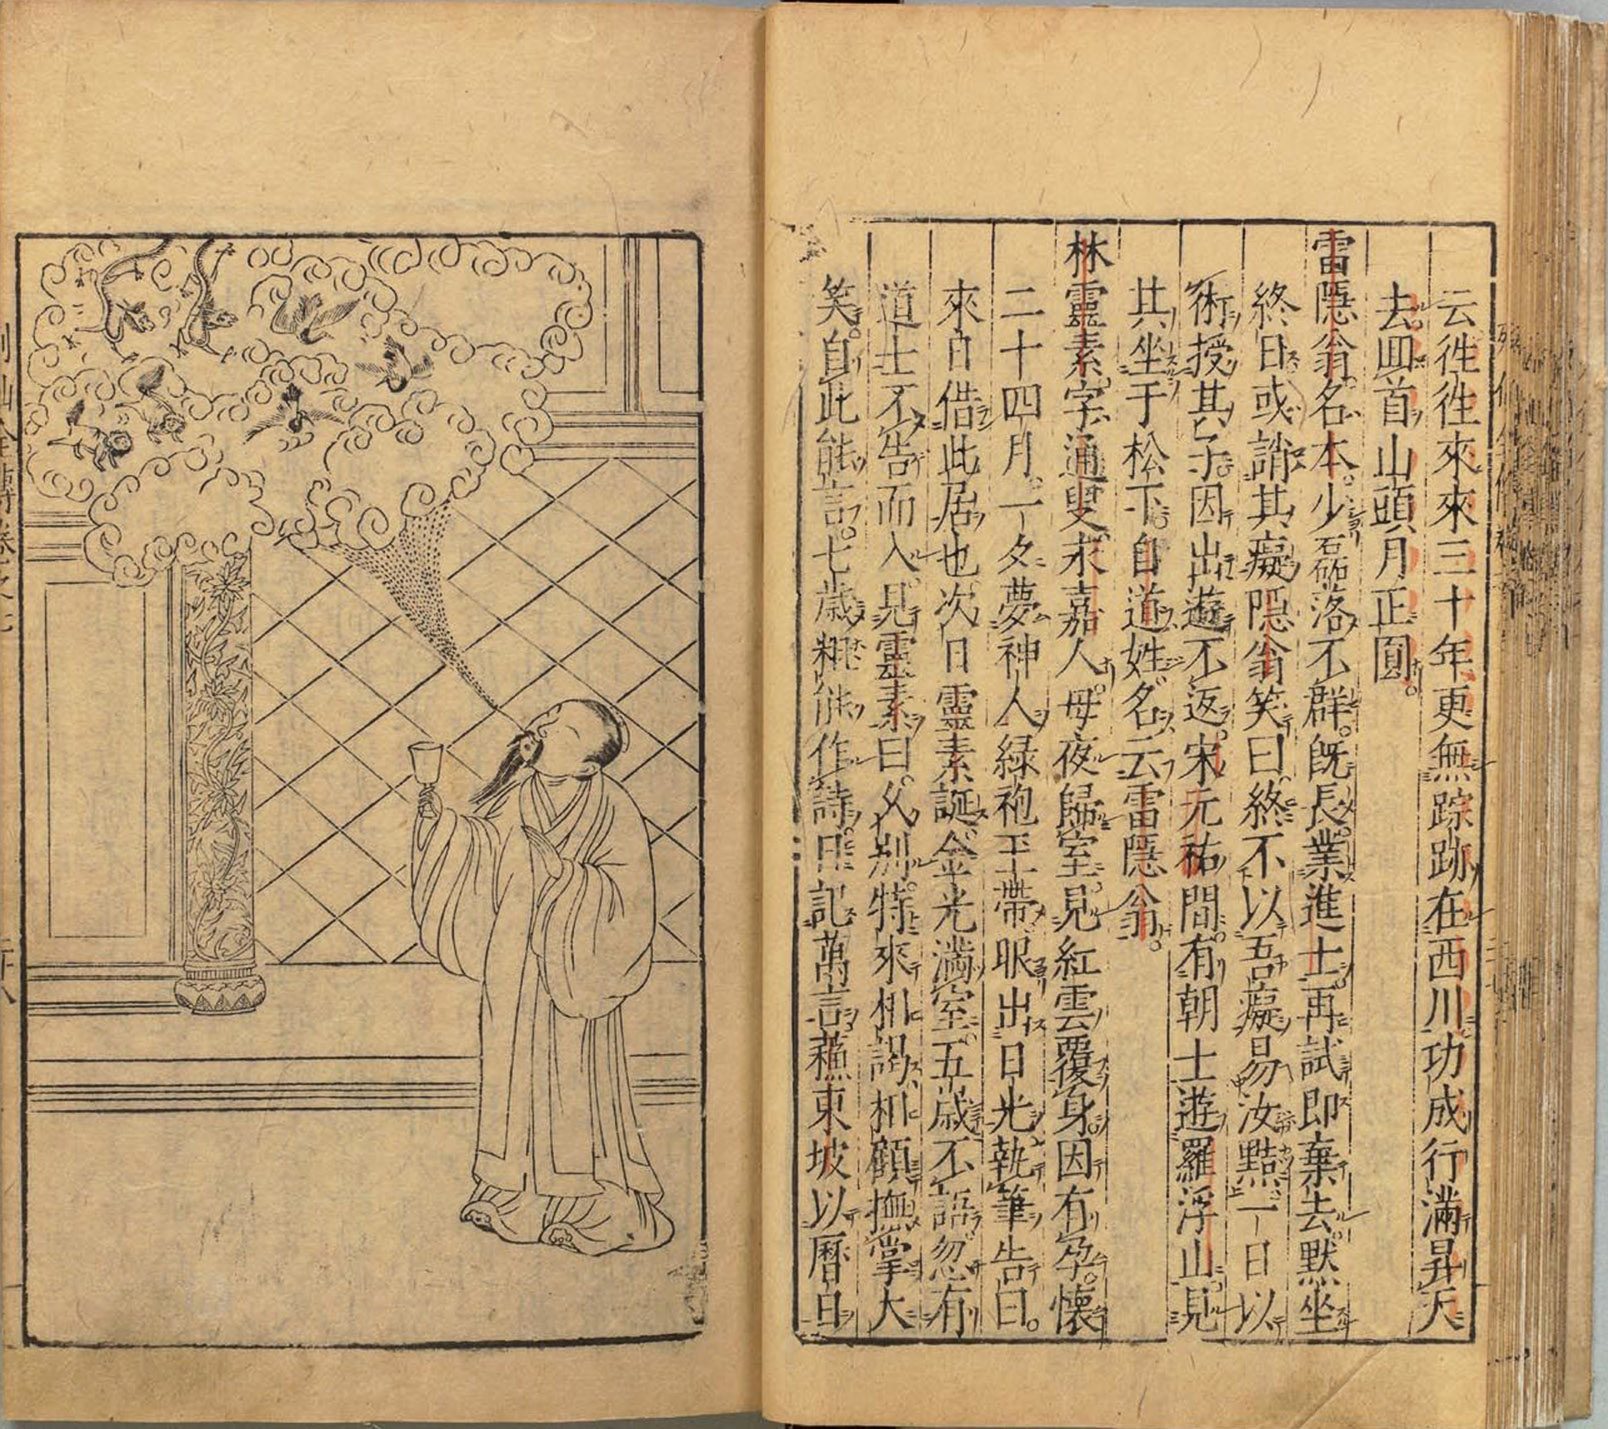 云徃徃來來三十年更無踪跡在西川功成行滿昇天
去囬首山頭月正圓。
雷隱翁。名本。少磊落不群。既長業進士。再試即棄去。默坐
終日或誚其癡隱翁笑曰。終不以吾癡易汝黠。一日以
術授其子。因出遊不返。宋元祐間。有朝士遊羅浮山。見
其坐于松下。自道姓名。云雷隱翁。
林靈素。字通叟。永嘉人。母夜歸室。見紅雲覆身。因有孕。懷
二十四月。一夕夢神人綠袍玉帶眼出日光執筆告曰。
來日借此居也。次日靈素誕。金光滿室。五歲不語。忽有
道士不告而入。見靈素曰。久別。特來相謁。相顧撫掌大
笑。自此能言。七歲粗能作詩。日記萬言蘓東坡以曆日
列仙全傳卷之七